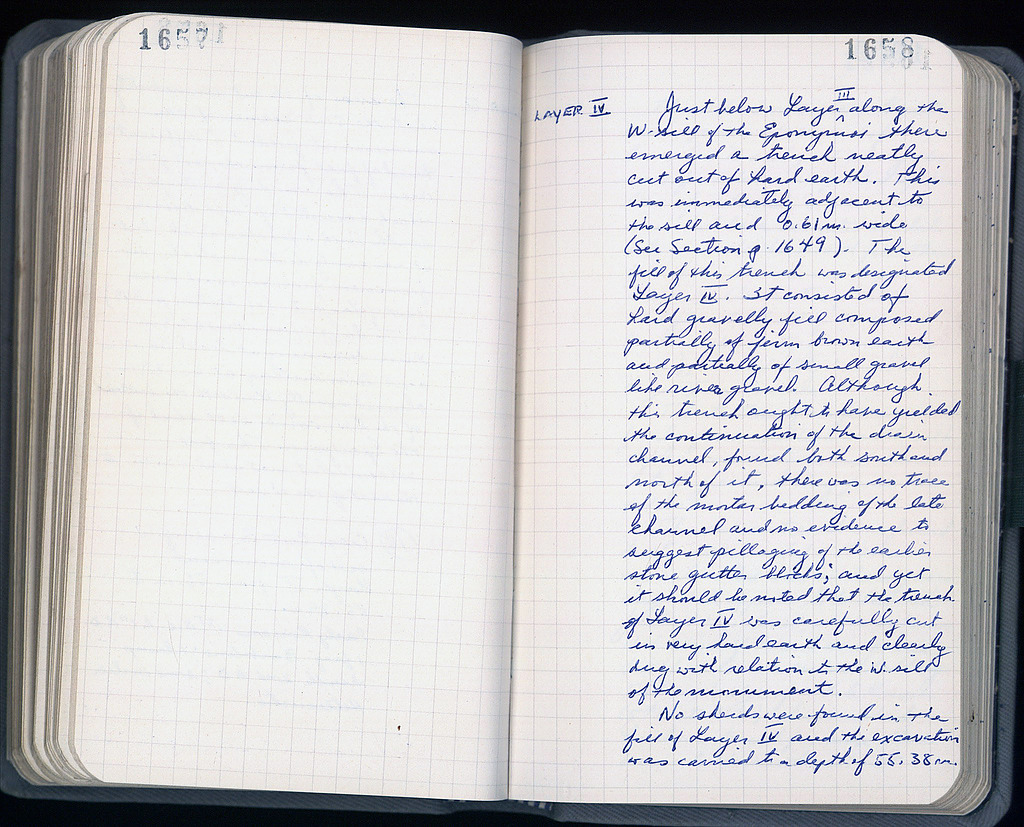 1657
1658
LAYER IV
Just below Layer III along the
W. sill of the Eponymoi there
emerged a trench neatly
cut out of hard earth. This
was immediately adjacent to
the sill and 0.61 m. wide
(See Section p. 1649). The
fill of this trench was designated
Layer IV. It consisted of
hard gravelly fill composed
partially of firm brown earth
and partially of small gravel
like river gravel. Although
this trench ought to have yielded
the continuation of the drain
channel, found both south and
north of it, there was no trace
of the mortar bedding of the late
channel and no evidence to
suggest pillaging of the earlier
stone gutter blocks; and yet
it should be noted that the trench
of Layer IV was carefully cut
in very hard earth and clearly
dug with relation to the W. sill
of the monument.
No sherds were found in the
fill of Layer IV and the excavation
was carried to a depth of 55.38 m.